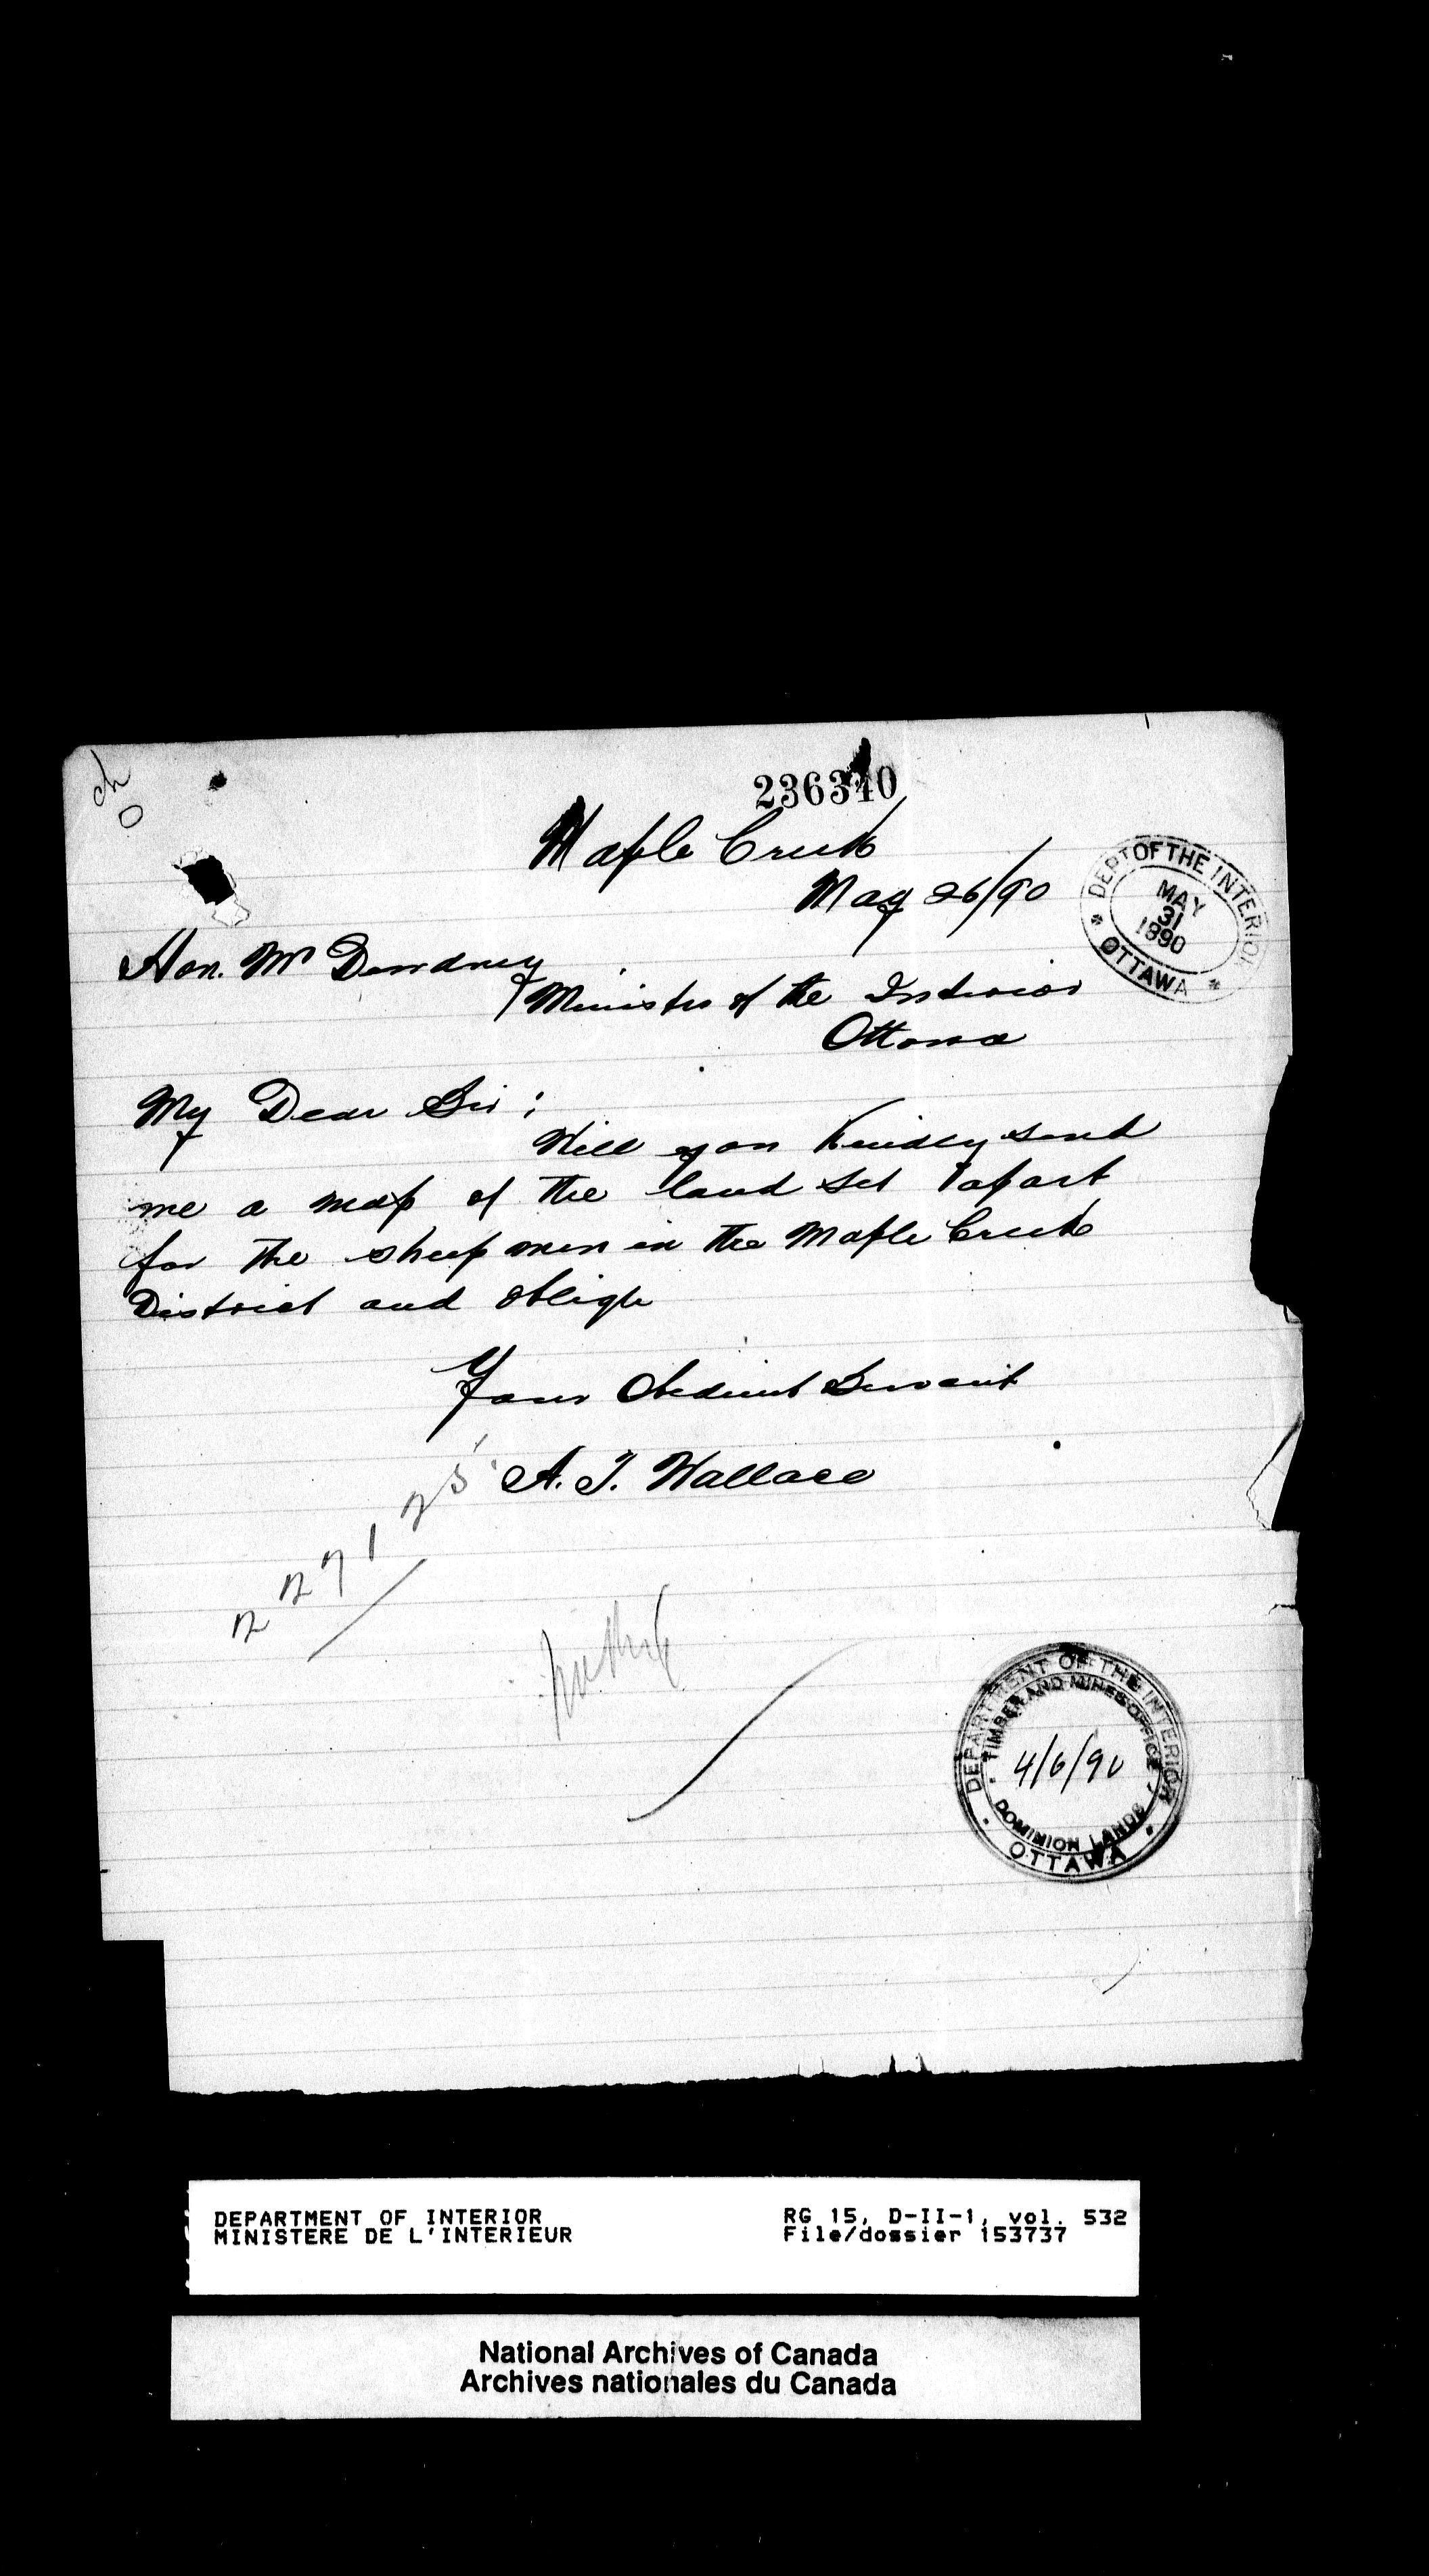 ch
0
236340
Maple Creek
May 26/90
DEPT OF THE INTERIOR
MAY
31
1890
OTTAWA
Hon. Mr Dewdney
Minister of the Interior
Ottawa
My Dear Sir;
Will you Kindly send
me a map of the land set apart
for the sheep men in the Maple Creek
District and oblige
Your Obedient Servant
A. J. Wallace
227125
DEPARTMENT OF THE INTERIOR
TIMBER AND MINES OFFICE
4/6/90
DOMINION LANDS
OTTAWA
DEPARTMENT OF INTERIOR
MINISTERE DE L'INTERIEUR
RG 15, D-II-1, vol. 532
File/dossier 153737
National Archives of Canada
Archives nationales du Canada